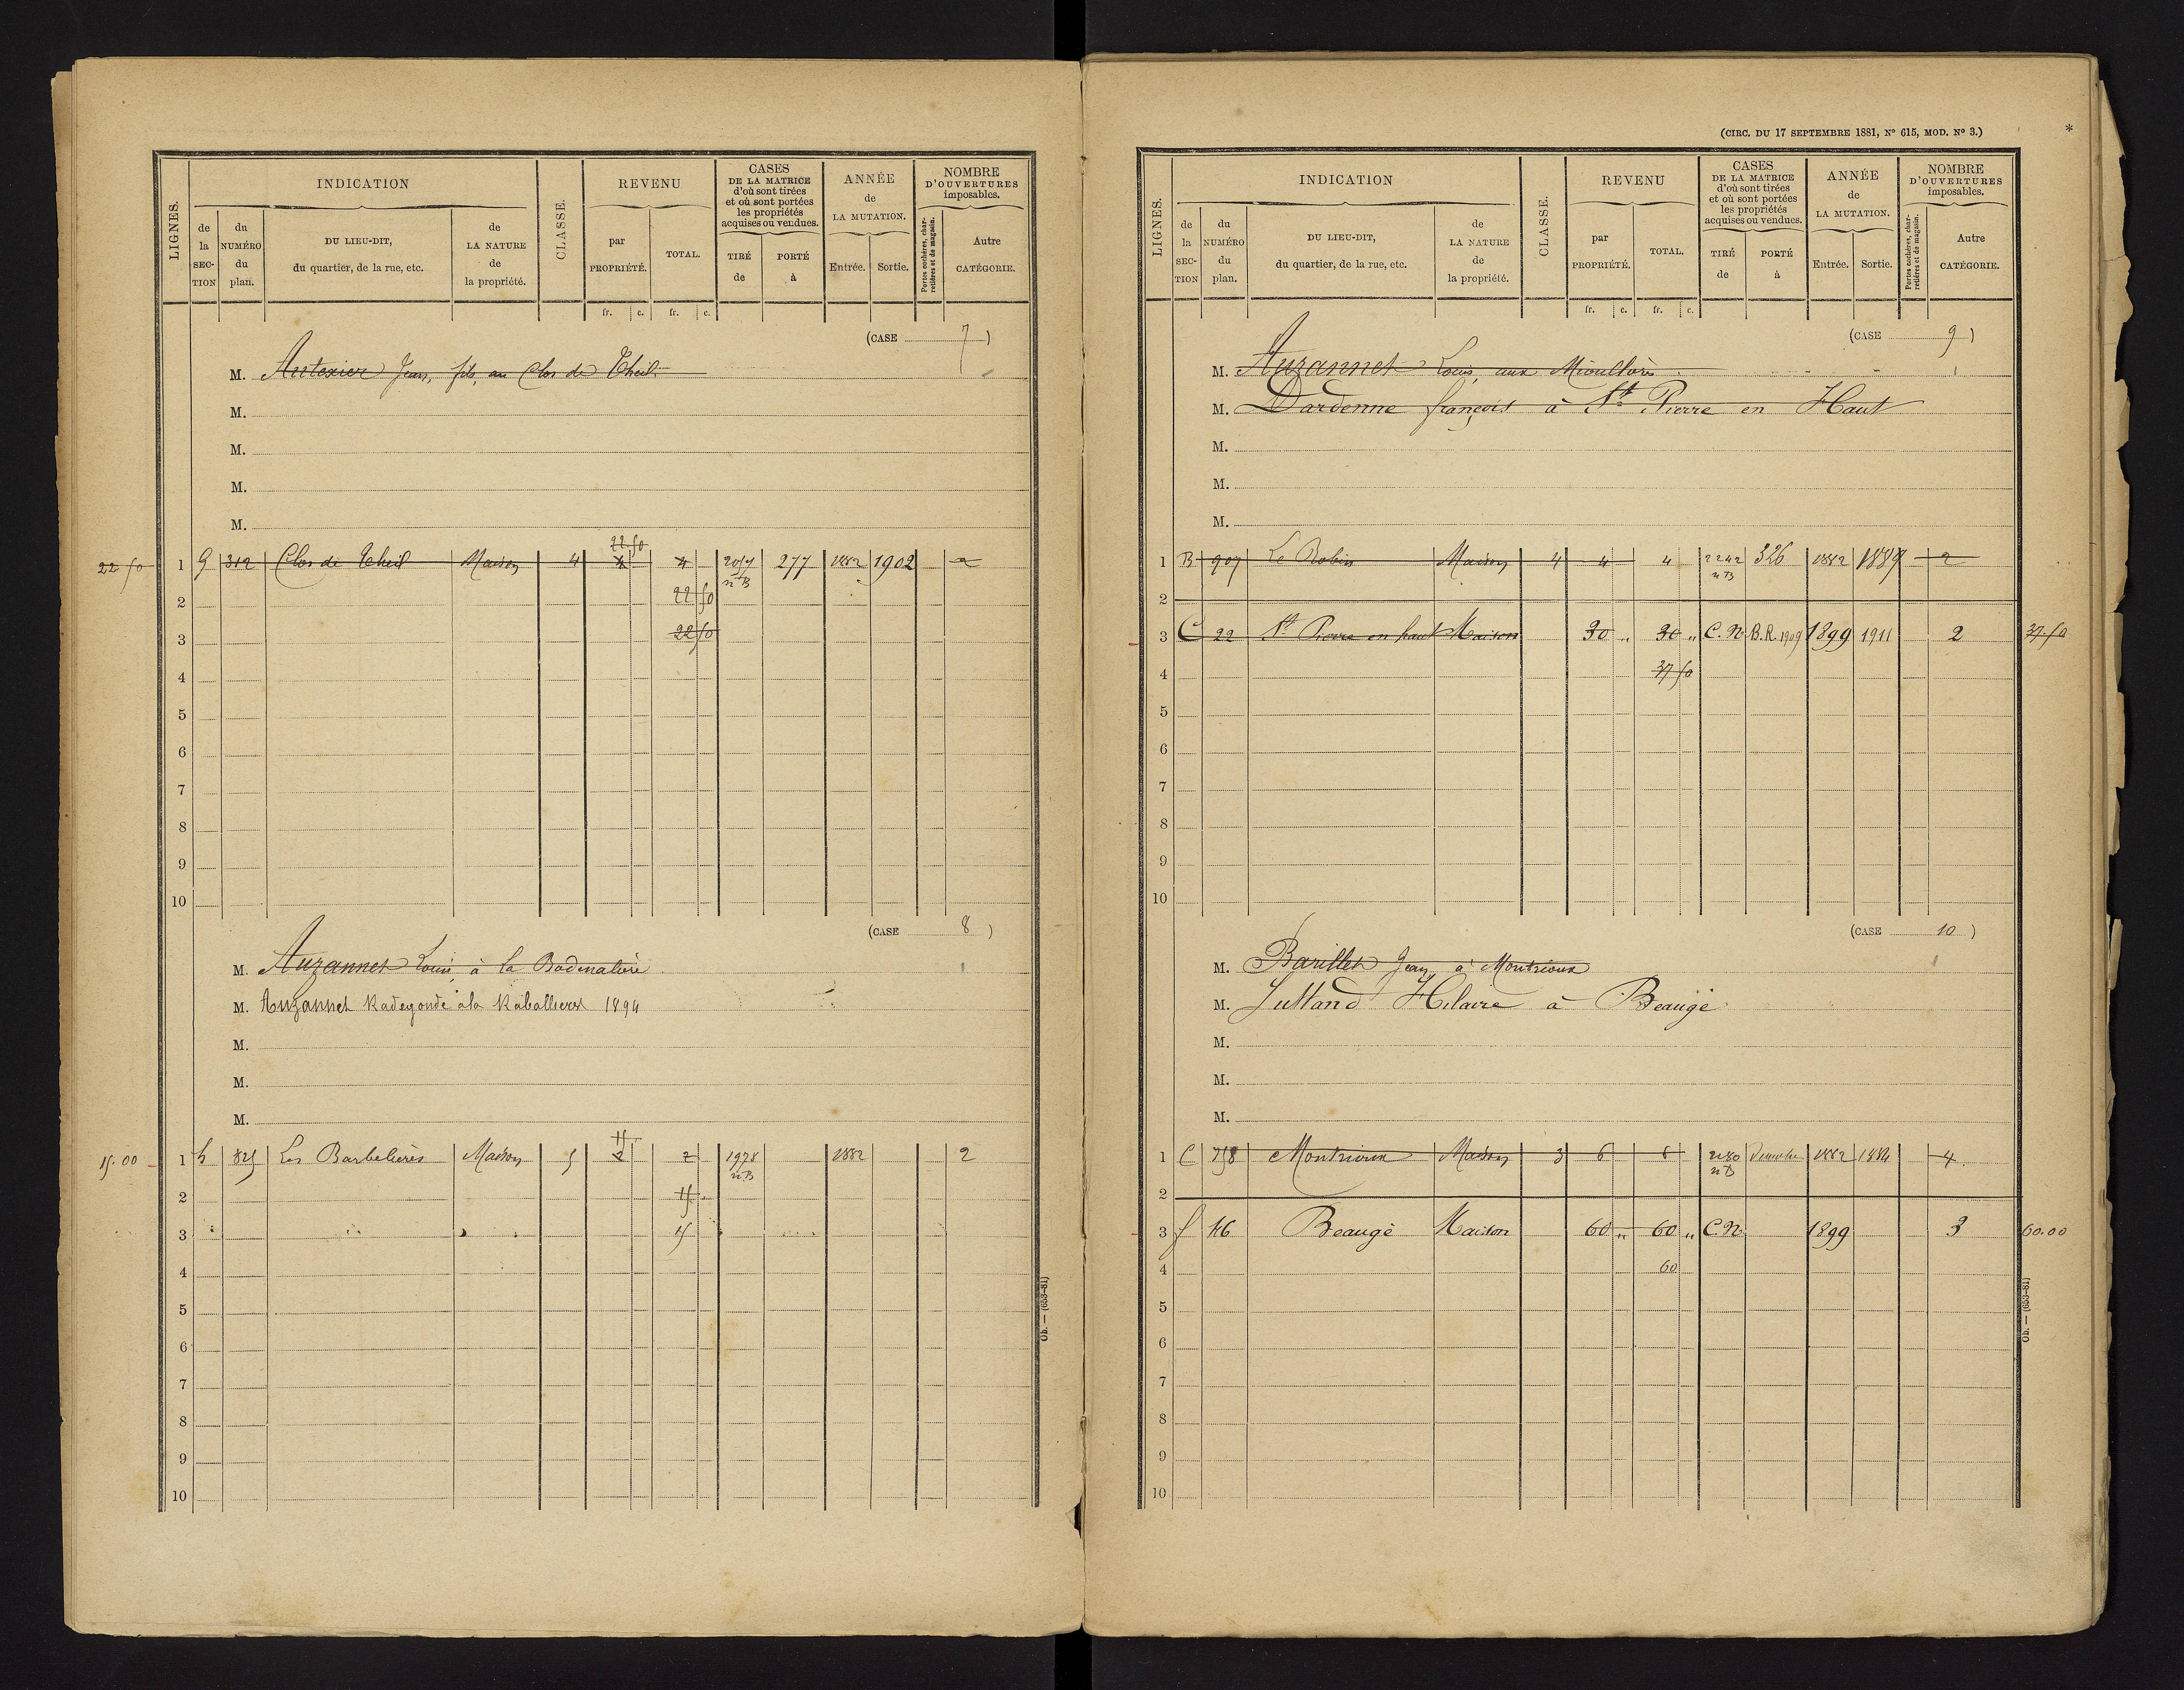 LIGNES.
INDICATION
CLASSE.
REVENU
CASES
DE LA MATRICE
d'où sont tirées
et où sont portées
les propriétés
acquises ou vendues.
ANNÉE
de
LA MUTATION.
NOMBRE
D'OUVERTURES
imposables.
de la SECTION
du NUMÉRO du plan.
DU LIEU-DIT,
du quartier, de la rue, etc.
de LA NATURE de la propriété.
par PROPRIÉTÉ.
TOTAL.
TIRÉ de
PORTÉ à
Entrée.
Sortie.
Portes cochères, charretières et de magasin.
Autre CATÉGORIE.
fr. c. fr. c.
(CASE 7)
M. Autexier Jean, fils, au Clos de Theil
M.
M.
M.
M.
22 50
22 50 1 G 312 Clos de Theil Maison 4 4 4 277 1882 1902 2
n B
2 22 50
3 22 50
4
5
6
7
8
9
10
(CASE 8)
M. Auzannet Louis, à la
M. Auzannet Radegonde à la 1894
M.
M.
M.
15
15.00 1 h 825 Les Barbelières Maison 5 2 2 1978 1882 2
n B
2 15
3 15
4
5
6
7
8
9
10
Ob. — (653-81)
(CIRC. DU 17 SEPTEMBRE 1881, N° 615, MOD. N° 3.) *
LIGNES.
INDICATION
CLASSE.
REVENU
CASES
DE LA MATRICE
d'où sont tirées
et où sont portées
les propriétés
acquises ou vendues.
ANNÉE
de
LA MUTATION.
NOMBRE
D'OUVERTURES
imposables.
de la SECTION
du NUMÉRO du plan.
DU LIEU-DIT,
du quartier, de la rue, etc.
de LA NATURE de la propriété.
par PROPRIÉTÉ.
TOTAL.
TIRÉ de
PORTÉ à
Entrée.
Sortie.
Portes cochères, charretières et de magasin.
Autre CATÉGORIE.
fr. c. fr. c.
(CASE 9)
M. Auzannet Louis, aux
M. Dardenne françois à St Pierre en Haut
M.
M.
M.
1 B 907 Le Robin Maison 4 4 4 2242 326 1882 1889 2
n B
2
3 C 22 St Pierre en haut Maison 30 „ 30 „ C.N B.R. 1909 1899 1911 2 37 50
4 37 50
5
6
7
8
9
10
(CASE 10)
M. Barillet Jean, à Montrioux
M. Hilaire à Beaugé
M.
M.
M.
1 C 758 Montrioux Maison 3 6 6 2180 1882 1884 4
n B
2
3 f 46 Beaugé Maison 60 „ 60 „ C.N 1899 3 60.00
4 60
5
6
7
8
9
10
Ob. — (653-81)